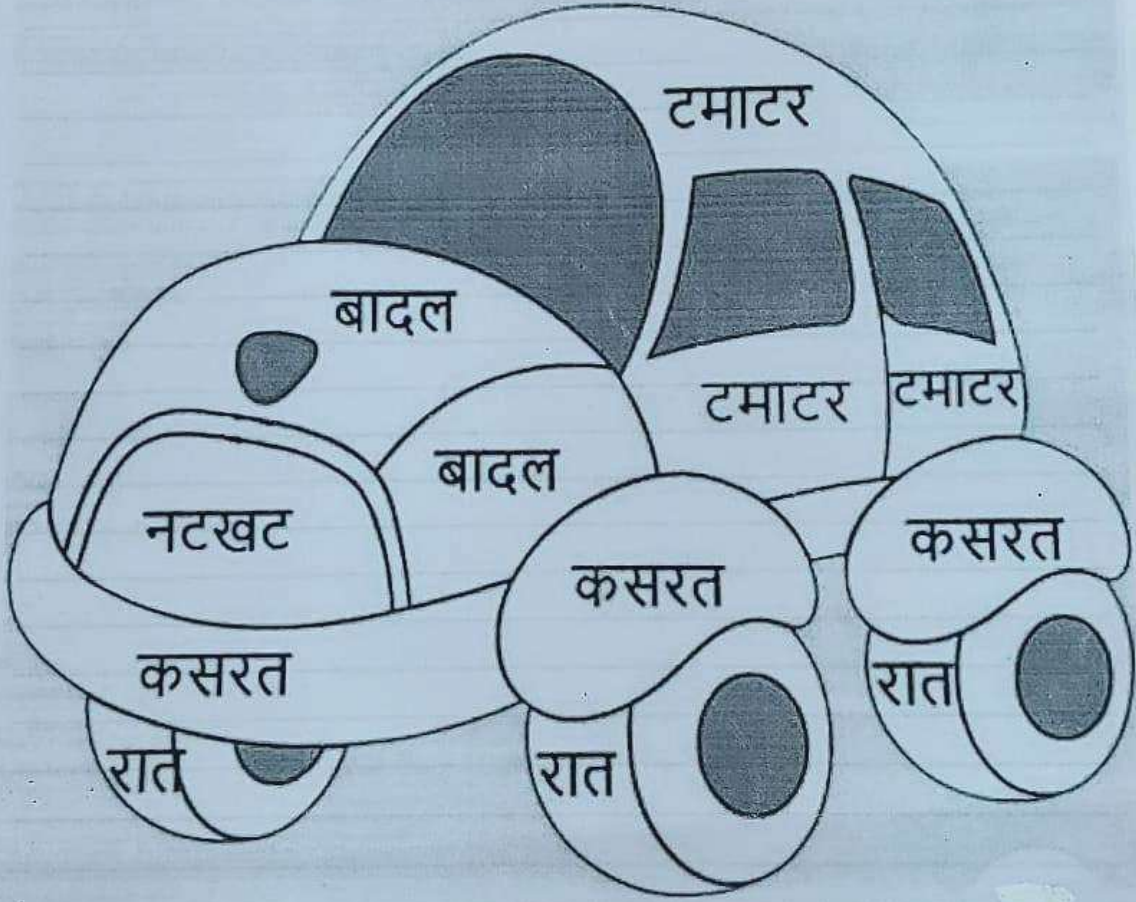 टमाटर
बादल
टमाटर
टमाटर
बादल
नटखट
कसरत
कसरत
कसरत
रात
रात
रात